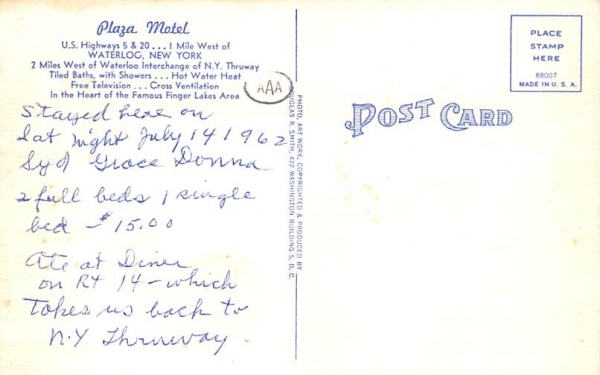 Plaza Motel
U.S. Highways 5 & 20 . . . 1 Mile West of
WATERLOO, NEW YORK
2 Miles West of Waterloo Interchange of N.Y. Thruway
Tiled Baths, with Showers . . . Hot Water Heat
Free Television . . . Cross Ventilation
In the Heart of the Famous Finger Lakes Area
AAA
Stayed here on
Sat night July 14 1962
Syd Grace Donna
2 full beds 1 single
bed - $15.00
Ate at Diner
on Rt 14 - which
Takes us back to
N.Y. Thruway.
PHOTO, ART WORK, COPYRIGHTED & PRODUCED BY
DOUGLAS R. SMITH, 422 WASHINGTON BUILDING S, D. C.
POST CARD
PLACE
STAMP
HERE
68007
MADE IN U. S. A.